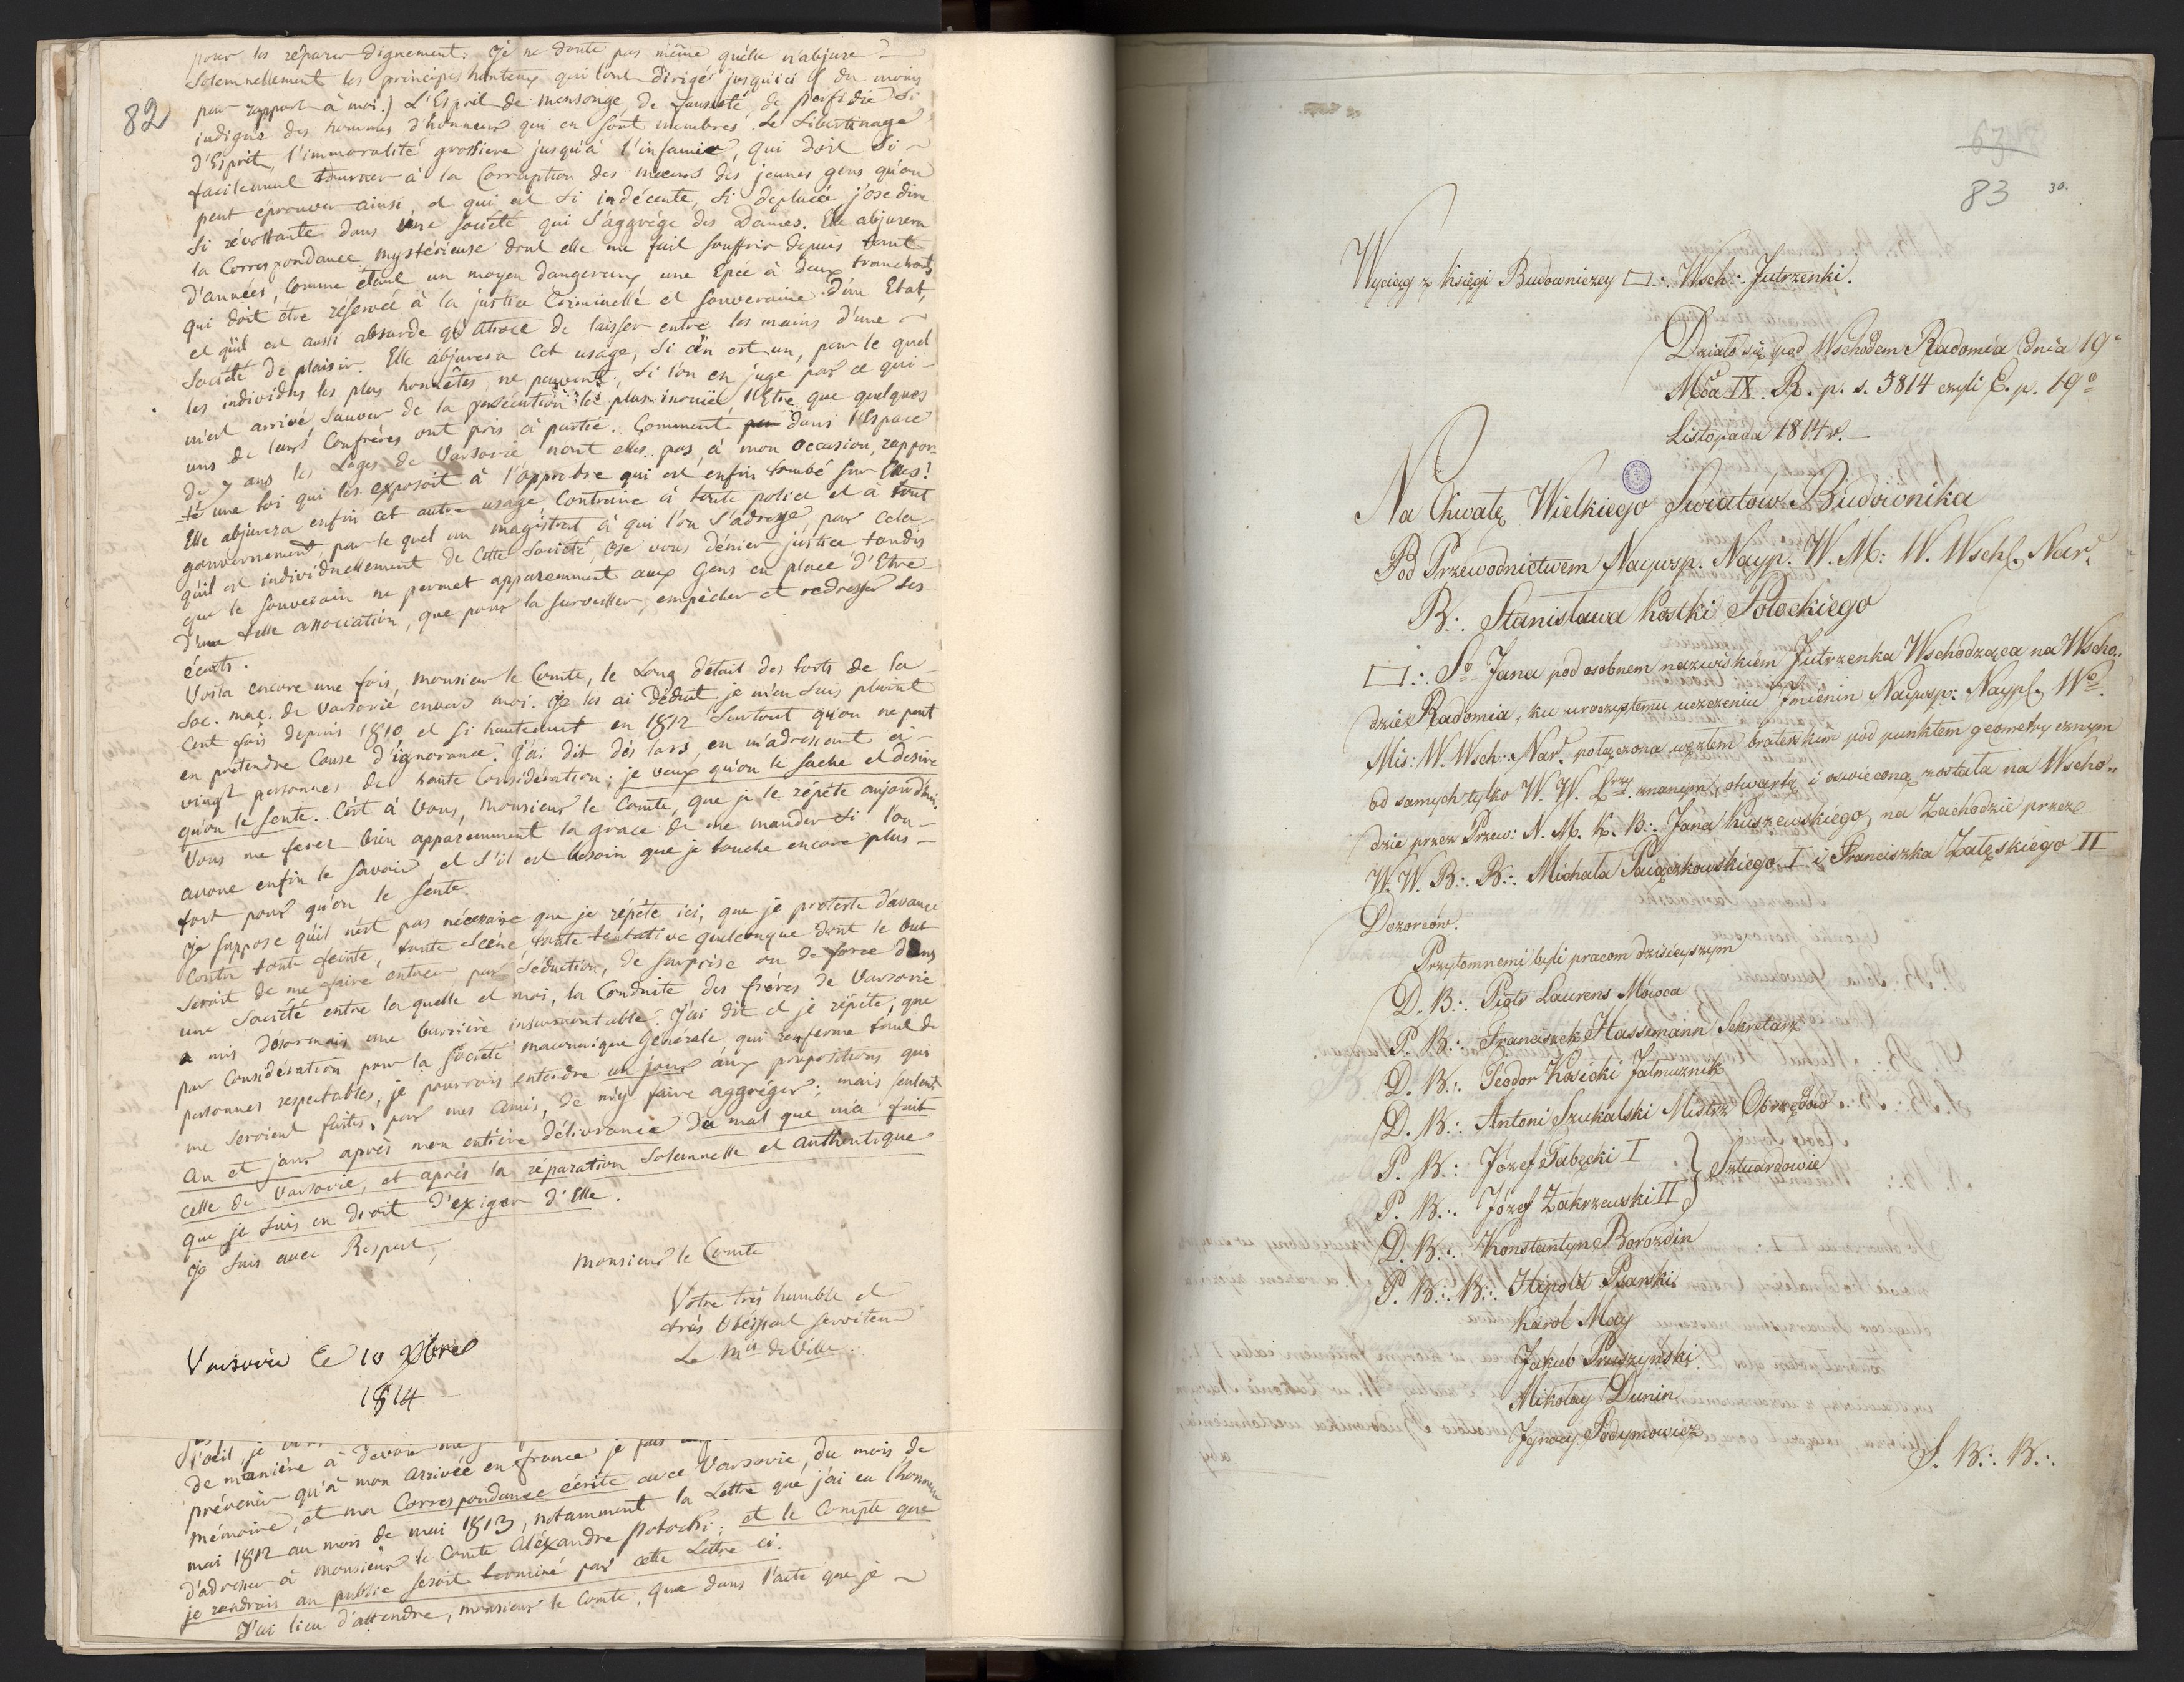 82
pour les réparer dignement. Je ne doute pas même qu'elle n'abjure
Solemnellement les principes honteux qui l'ont dirigés jusqu'ici (du moins
par rapport à moi.) L'Esprit de mensonge, de fausseté, de perfidie si
indigne des hommes d'honneur qui en sont membres. Le Libertinage
d'Esprit, l'immoralité grossiere jusqu'à l'infamie, qui doit si
facilement tourner à la Corruption des moeurs des jeunes gens qu'on
peut éprouver ainsi, et qui est si indécente, si deplacée j'ose dire
si révoltante dans une société qui s'aggrége des Dames. Elle abjurera
la Correspondance mystérieuse dont elle me fait souffrir depuis tant
d'années, comme étant un moyen dangereux une Epée à deux tranchants
qui doit être réservée à la justice Criminelle et souveraine d'un Etat,
et qu'il est aussi absurde qu'atroce de laisser entre les mains d'une
Société de plaisir. Elle abjurera cet usage, si c'en est un, par le quel
les individus les plus honnêtes ne peuvent, si l'on en juge par ce qui
m'est arrivé, sauver de la persécution la plus inouïe l'Etre que quelques
uns de leurs Confrères ont pris à partie. Comment dans l'Espace
de 7 ans les Loges de Varsovie n'ont elles pas, à mon occasion, rappor-
té une loi qui les exposoit à l'opprobre qui est enfin tombé sur Elles!
Elle abjurera enfin cet autre usage contraire à toute police et à tout
gouvernement, par le quel un magistrat à qui l'on s'adresse pour cela
qu'il est individuellement de cette Société, ose vous dénier justice tandis
que le Souverain ne permet apparemment aux Gens en place d'Etre
d'une telle association, que pour la surveiller, empêcher et redresser ses
écarts.
Voila encore une fois, Monsieur le Comte, le Long détail des torts de la
Soc. mac. de Varsovie envers moi. Je les ai déduit, je m'en suis plaint
Cent fois depuis 1810 et si hautement en 1812 surtout qu'on ne peut
en prétendre Cause d'ignorance. J'ai dit dès lors, en m'adressant à
vingt personnes de haute Considération; je veux qu'on le sache et desire
qu'on le sente. C'est à Vous, Monsieur le Comte, que je le répéte aujourd'hui.
Vous me ferez bien apparemment la grace de me mander si l'on
avoue enfin le savoir et s'il est besoin que je touche encore plus
fort pour qu'on le sente.
Je suppose qu'il n'est pas nécessaire que je répéte ici, que je proteste d'avance
Contre toute feinte, toute scène toute tentative quelconque dont le but
seroit de me faire entrer par séduction, de surprise ou de force dans
une Société entre la quelle et moi, la Conduite des frères de Varsovie
a mis désormais une barrière insurmontable. J'ai dit et je répéte, que
par Considération pour la Société maçonnique Générale qui renferme tant de
personnes respectables, je pourrois entendre un jour aux propositions qui
me seroient faites, par mes amis, de m'y faire aggréger; mais seulement
an et jour après mon entière délivrance du mal que m'a fait
celle de Varsovie, et après la réparation solemnelle et authentique
que je suis en droit d'exiger d'Elle.
Je suis avec Respect,
Monsieur le Comte
Votre très humble et
très Obéissant serviteur
Le Mis de Ville
Varsovie Ce 10 Xbre
1814
de manière à devoir
prévenir qu'à mon arrivée en france je fais
mémoire, et ma Correspondance écrite avec Varsovie, du mois de
mai 1812 au mois de mai 1813, notamment la Lettre que j'ai eu l'honneur
d'adresser à Monsieur le Comte Aléxandre Potocki; et le Compte que
je rendrais au public seroit terminé par cette Lettre ci.
J'ai lieu d'attendre, Monsieur le Comte, que dans l'acte que je
63
83 30.
Wyciąg z Księgi Budowniczey □∴ Wsch∴ Jutrzenki.
Działo się pod Wschodem Radomia dnia 19o
Mca IX. R. p. s. 5814 czyli E. p. 19o
Listopada 1814 r.
Na Chwałę Wielkiego Światów Budownika
Pod Przewodnictwem Naywsp. Nayp. W. M: W. Wsch. Nar.
B∴ Stanisława Kostki Potockiego
□∴ So Jana pod osobnem nazwiskiem Jutrzenka Wschodząca na Wscho-
dzie Radomia, ku uroczystemu uczczeniu Jmienin Naywsp: Nayp. Wo
Mis: W. Wsch: Nar. połączona węzłem braterskim pod punktem geometrycznym
od samych tylko W. W. znanym, otwartą i oświeconą została na Wscho-
dzie przez Przew: N. M. K. B∴ Jana Kuszewskiego, na Zachodzie przez
W. W. B∴ B∴ Michała Pawęczkowskiego I i Franciszka Załęskiego II
Dozorców.
Przytomnemi byli pracom dzisieyszym
D. B∴ Piotr Laurens Mówca
P. B∴ Franciszek Hassmann Sekretarz
D. B∴ Teodor Kosicki Jałmużnik
D. B∴ Antoni Szukalski Mistrz Obrzędów
P. B∴ Józef Gabecki I
P. B∴ Józef Zakrzewski II } Sztuardowie
D. B∴ Konstantyn Borozdin
P. B∴ B∴ Hipolit Psarski
Karol Moły
Jakub Pruszyński
Mikołay Dunin
Jgnacy Podymowicz
S. B∴ B∴